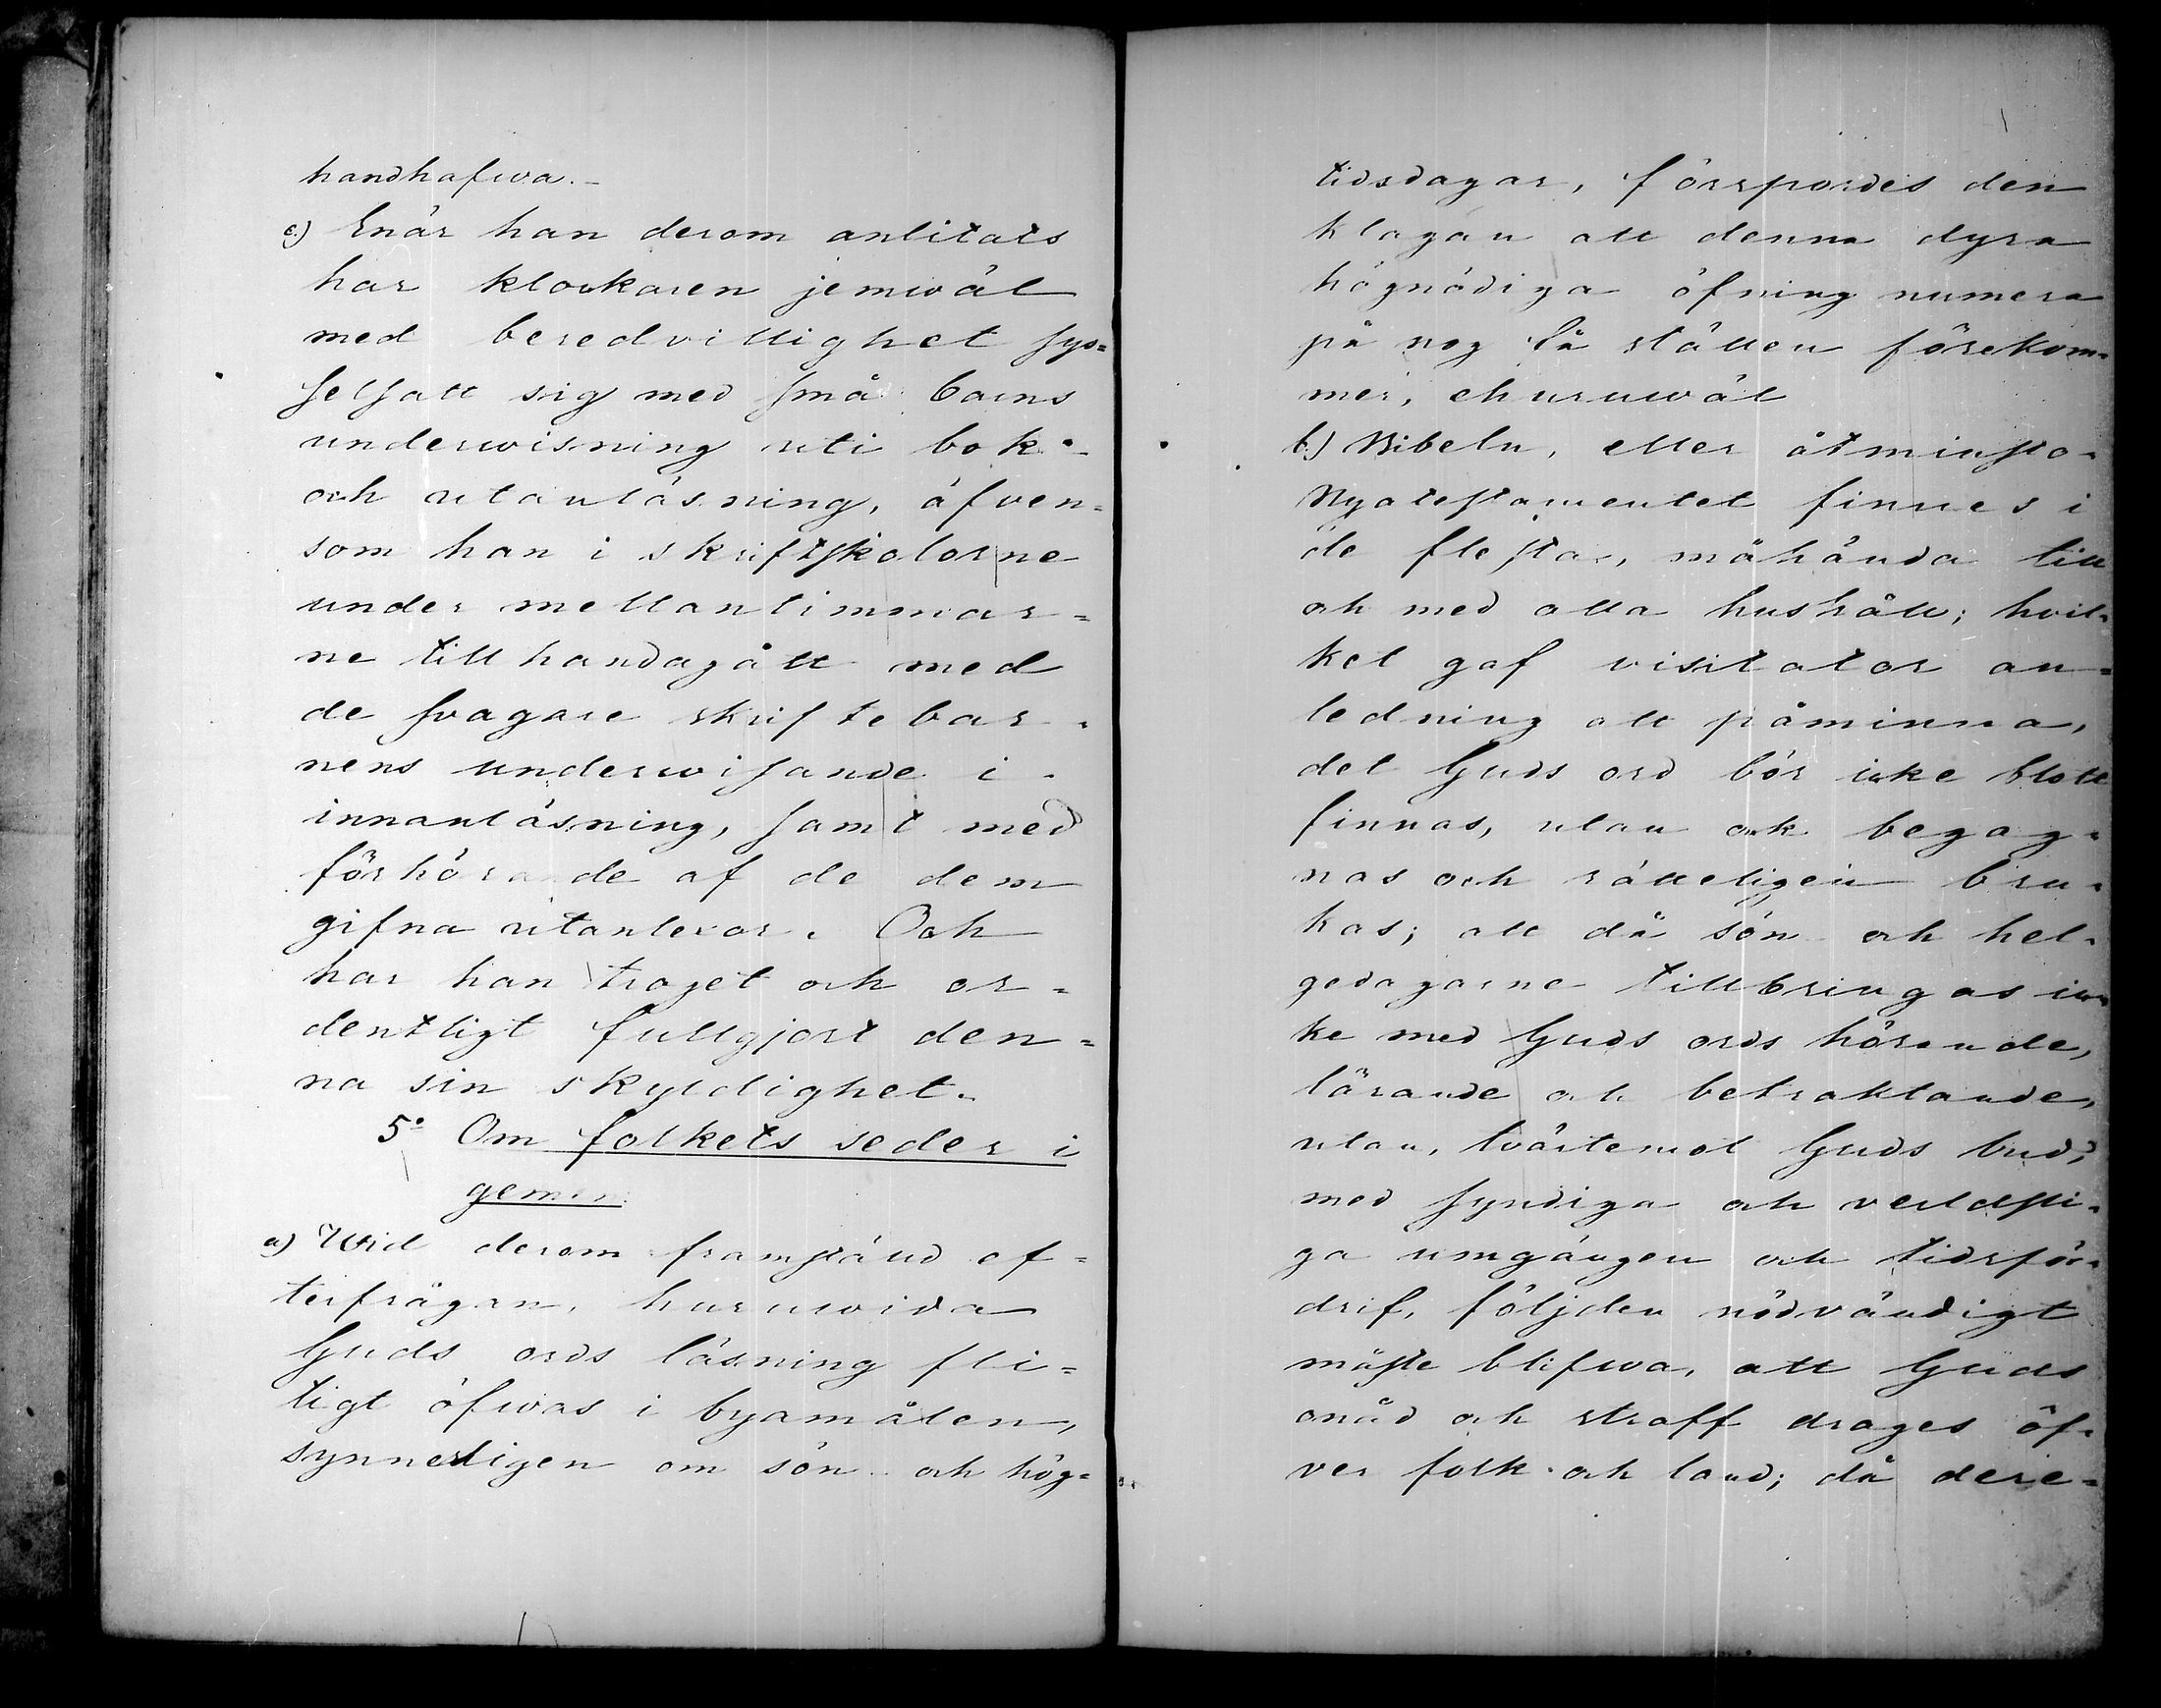 handhafwa.-
c.) Enär han derom anlitats
har klockaren jemwäl
med beredvillighet sys=
selsatt sig med små barns
underwisning uti bok-
och utanläsning, äfven-
som han i skriftskolorne
under mellantimmar=
ne tillhandagått med
de svagare skriftebar=
nens underwisande i
innanläsning, samt med
förhörande af de dem
gifna utanlexor. Och
har han troget och or=
dentligt fullgjort den=
na sin skyldighet.
5º Om folkets seder i
gemen.
a) Wid derom framstäld ef=
terfrågan, huruwida
Guds ords läsning fli=
tigt öfwas i byamålen,
synnerligen om sön- och hög=
tidsdagar, försporde den
klagan att denna dyra
högnödiga öfning numera
på nog få ställen förekom=
mer, ehuruwäl
b.) Bibeln, eller åtminsto-
Nyatestamentet finnes i
de flesta, måhända till
och med alla hushåll; hvil=
ket gaf visitator an=
ledning att påminna,
det Guds ord bör icke blott
finnas, utan ock begag=
nas och rätteligen bru=
kas; att då sön- och hel=
gedagarne tillbringas ic=
ke med Guds ords hörande,
lärande och betraktande,
utan, tvärtemot Guds bud,
med syndiga och verldsli=
ga umgängen och tidsför=
drif, följden nödvändigt
måste blifwa, att Guds
onåd och straff drages öf=
ver folk och land; då dere=